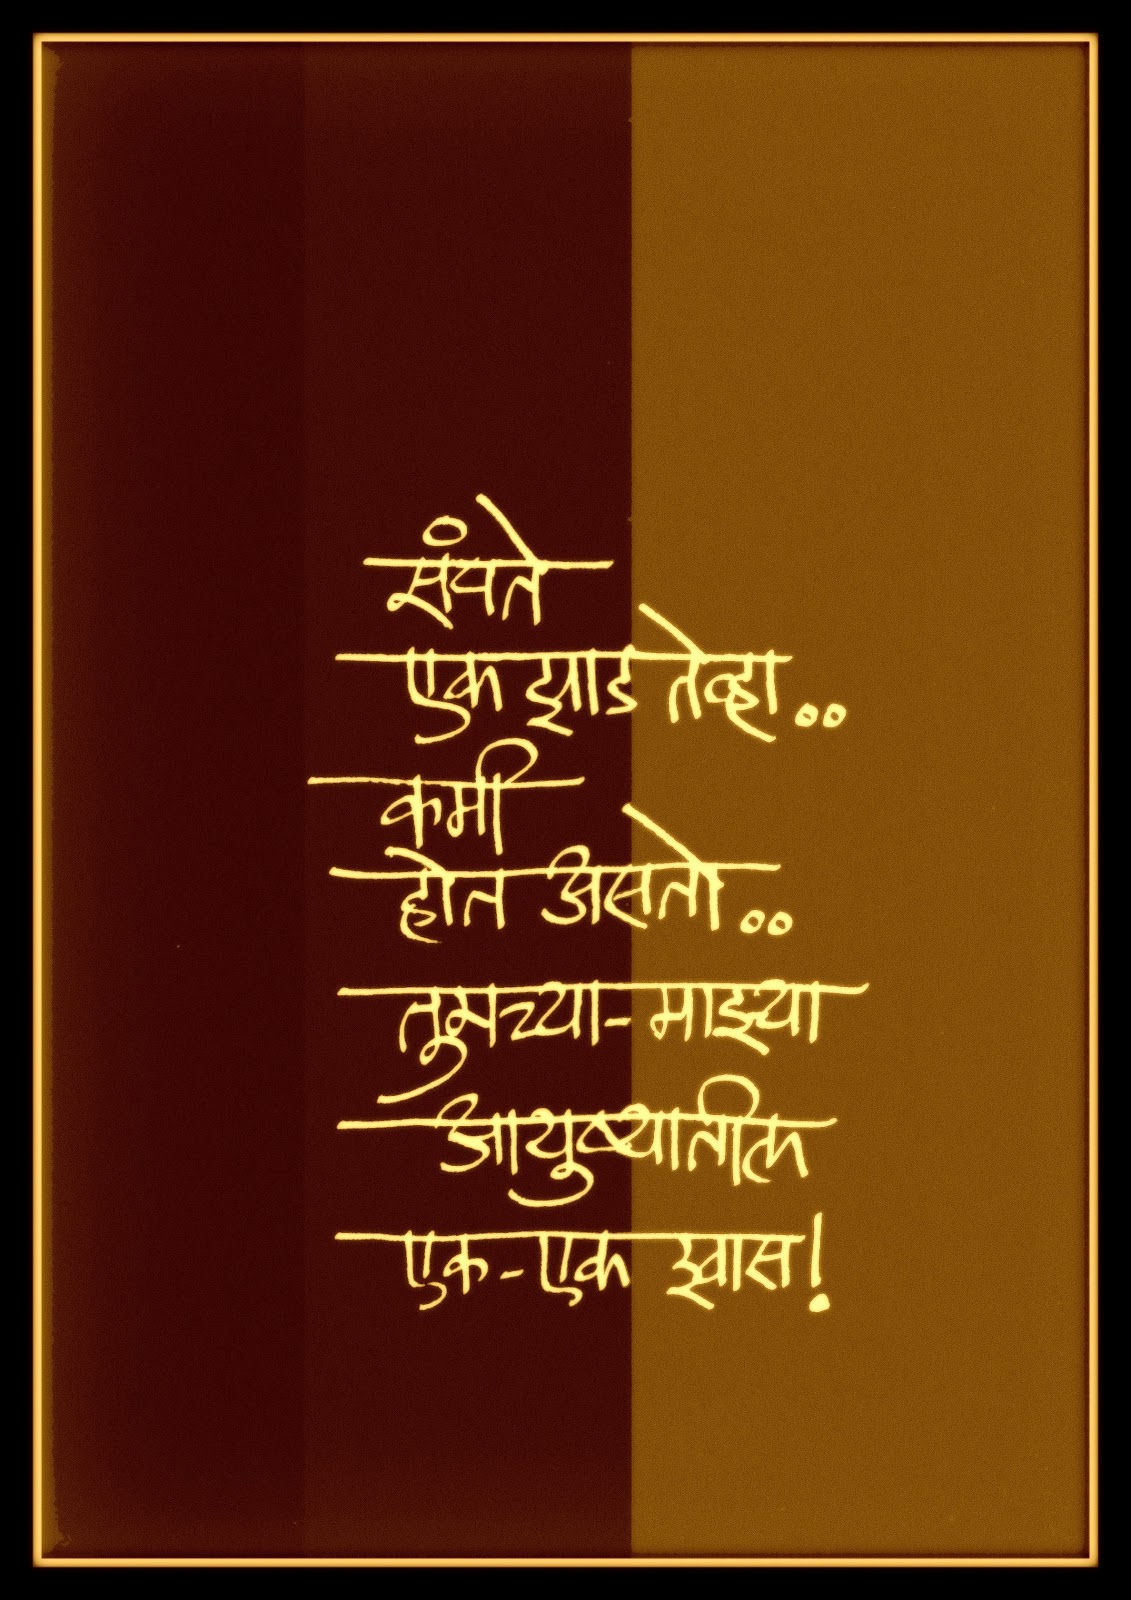 संपते
एक झाड तेव्हा..
कमी
होत असतो..
तुमच्या-माझ्या
आयुष्यातील
एक-एक श्वास!